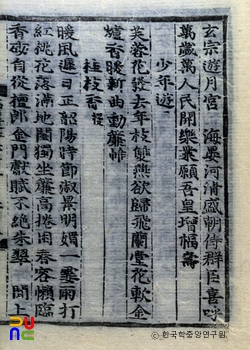 玄宗遊月宮 海晏河淸盛朝侍群臣喜呼
萬歲萬人民開樂衆願吾皇增福壽
少年遊
芙蓉花發去年枝雙燕欲歸飛蘭堂軟金
爐香暖新曲動簾帷
桂枝香慢
暖風遲日正韶陽時節淑景明媚一霎雨打
紅桃花落滿地閑獨坐簾高捲困春容懶臨
香砌自從檀郞金門獻賦不絶朱翠 問上
PUNC
ⓒ한국학중앙연구원